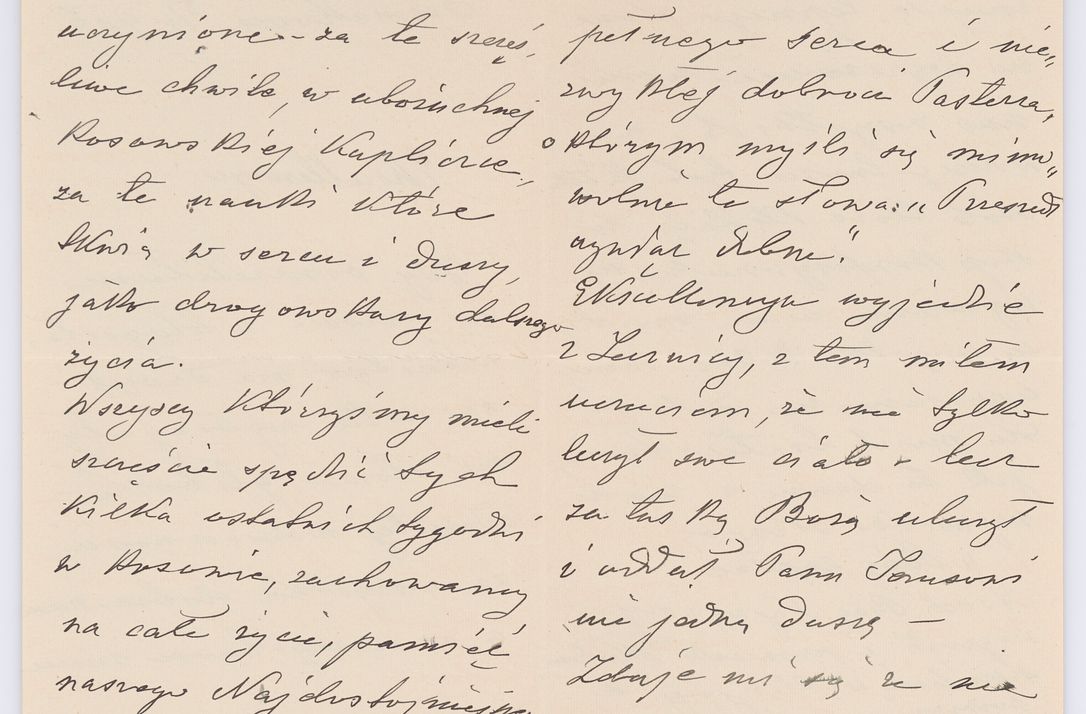 uczynione – za te szczęś„
liwe chwile, w uboziuchnej
Rosowskiéj Kapliczce,
za te nauki które
tkwią w sercu i duszy,
jako drogowskazy dalszego
życia.
Wszyscy którzyśmy mieli
szczęście spędzić tych
kilka ostatnich tygodni
w Rosowie, zachowamy
na całe życie, pamięć
naszego Najdostojniejsze
pełnego serca i nie„
zwykłéj dobroci Pasterza,
o którym myśli się mimo„
wolnie te słowa: „Przeszedł
czyniąc dobrze".
Ekscellencya wyjedzie
z Żurnicy, z tem miłem
uczuciem, że nie tylko
leczył swe ciało – lecz
za łaską Bożą uleczył
i oddał Panu Jezusowi
nie jedną duszę –
Zdaje mi się że nie